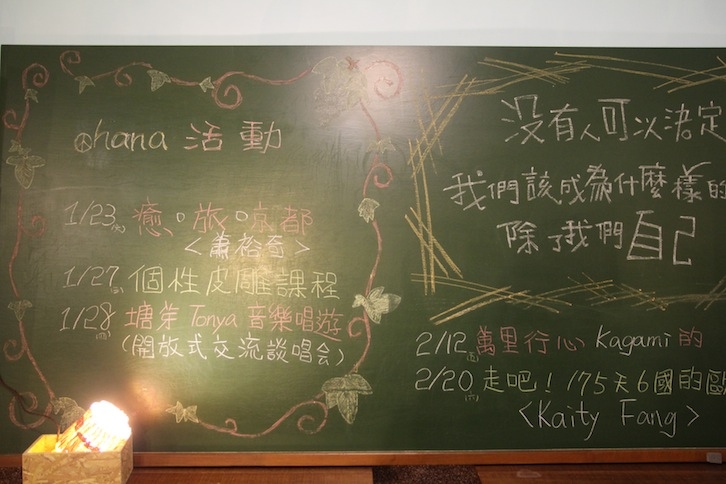 ohana 活動
1/23(六) 癒。旅。京都
<蕭裕奇>
1/27 個性皮雕課程
1/28 塘芽 Tonya 音樂唱遊
(開放式交流談唱会)
没有人可以決定
我們該成為什麼樣的
除了我們自己
2/12 萬里行心 Kagami 的
2/20 走吧! 175天6國的歐
<Kaity Fang>